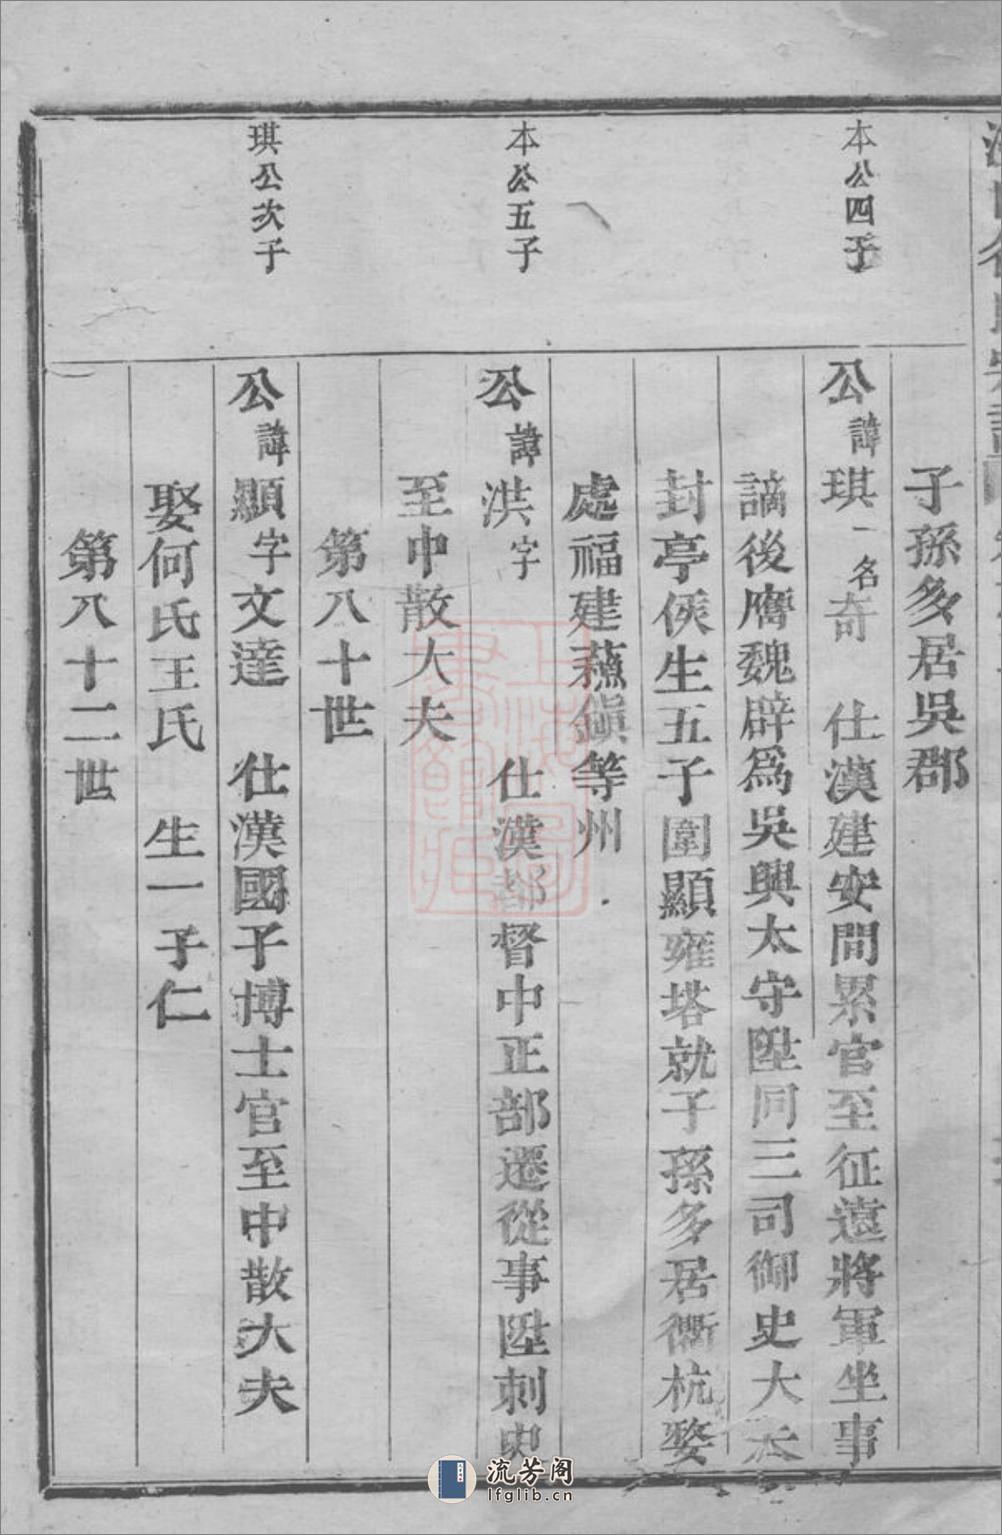 子孫多居吳郡
本公四子
公諱琪一名奇 仕漢建安間累官至征遠將軍坐事
謫後膺魏辟為吳興太守陞同三司御史大夫
封亭侯生五子圍顯雍塔就子孫多居衢杭婺
處福建蘓鎭等州
本公五子
公諱洪字 仕漢都督中正部遷從事陞刺史
至中散大夫
第八十世
琪公次子
公諱顯字文達 仕漢國子博士官至中散大夫
娶何氏王氏 生一子仁
第八十二世
上海圖書館藏
流芳阁
lfglib.cn